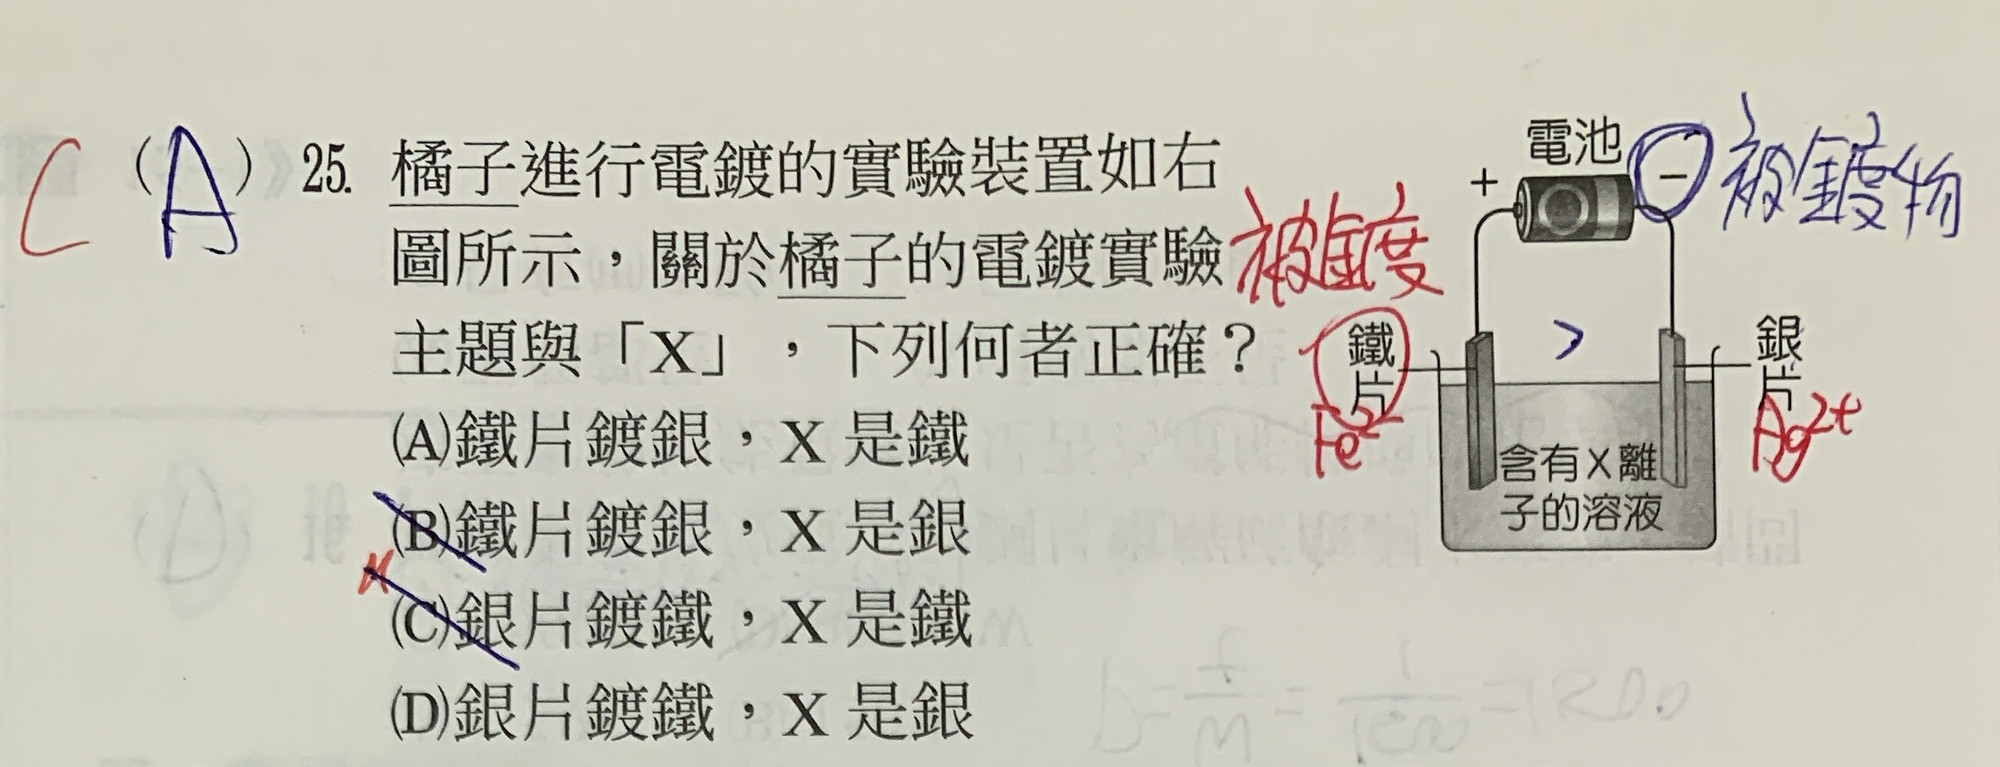 C (A) 25. 橘子進行電鍍的實驗裝置如右
圖所示，關於橘子的電鍍實驗
主題與「X」，下列何者正確？
(A)鐵片鍍銀，X 是鐵
(B)鐵片鍍銀，X 是銀
(C)銀片鍍鐵，X 是鐵
(D)銀片鍍鐵，X 是銀
電池
+
−
被鍍物
被鍍
鐵片
Fe²
>
銀片
Ag²⁺
含有X離
子的溶液